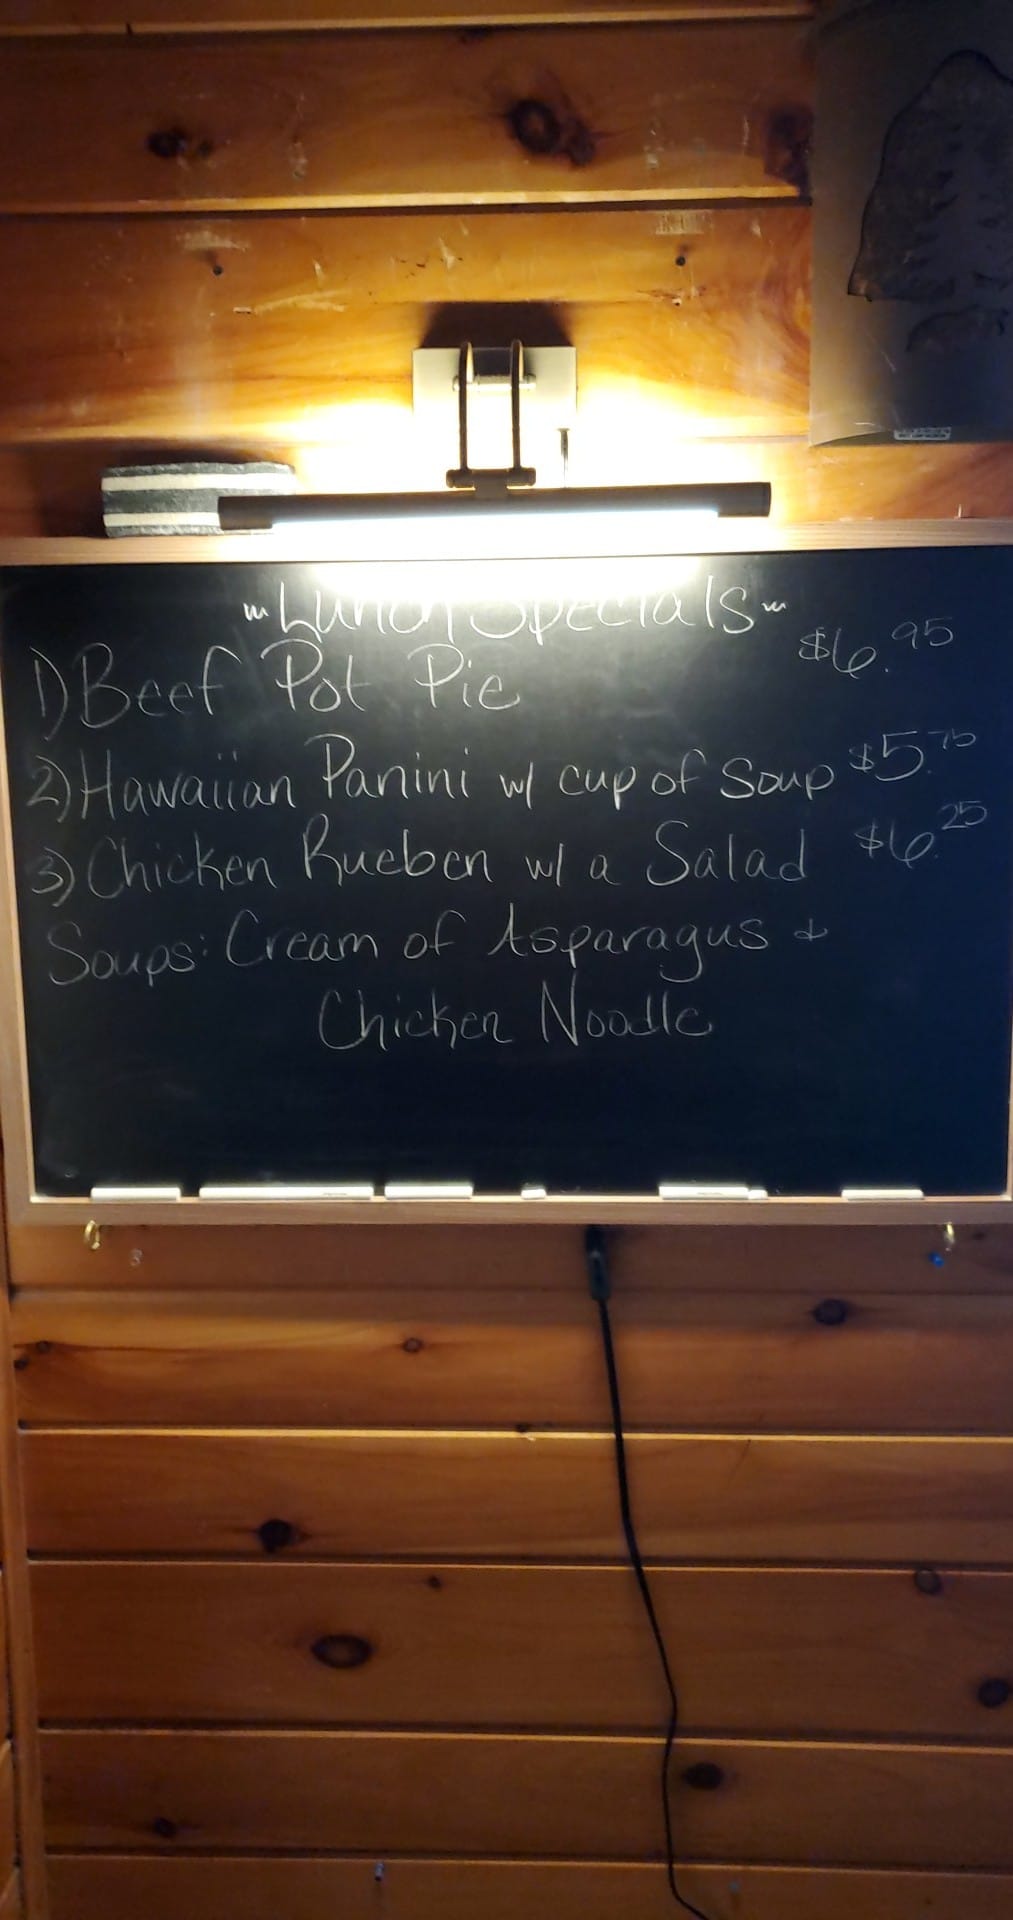 ~Lunch Specials~
1) Beef Pot Pie $6.95
2) Hawaiian Panini w/ cup of Soup $5.75
3) Chicken Rueben w/ a Salad $6.25
Soups: Cream of Asparagus &
Chicken Noodle